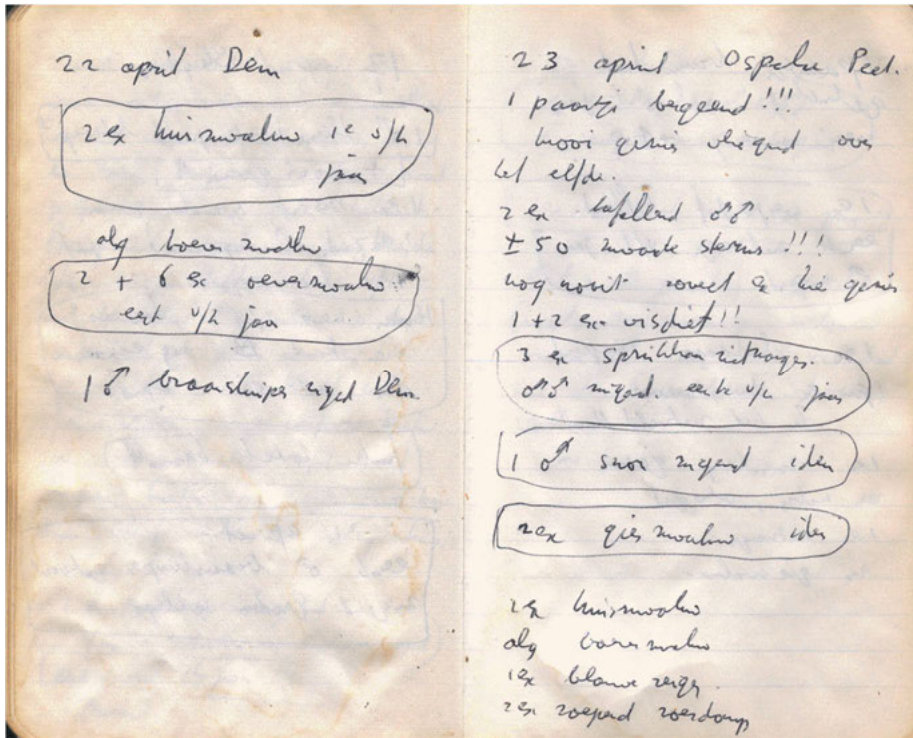 22 april Dem
2 ex huiszwaluw 1e v/h
jaar
alg boerezwaluw
2 + 6 ex oeverzwaluw
eerst v/h jaar
1 ♂ braamsluiper zingd Dem.
23 april Ospelse Peel.
1 paartje
mooi gezien vliegend over
het
2 ex ♂♂
± 50 zwarte sterns !!!
nog nooit zoveel ex hie gezien
1 + 2 ex visdief !!
3 ex sprinkhaan rietzanger.
♂♂ zingend. eerste v/h jaar
1 ♂ snor zingend idem
2 ex gierzwaluw idem
2 ex huiszwaluw
alg boerezwaluw
1 ex blauwe reiger
2 ex roepend roerdomp